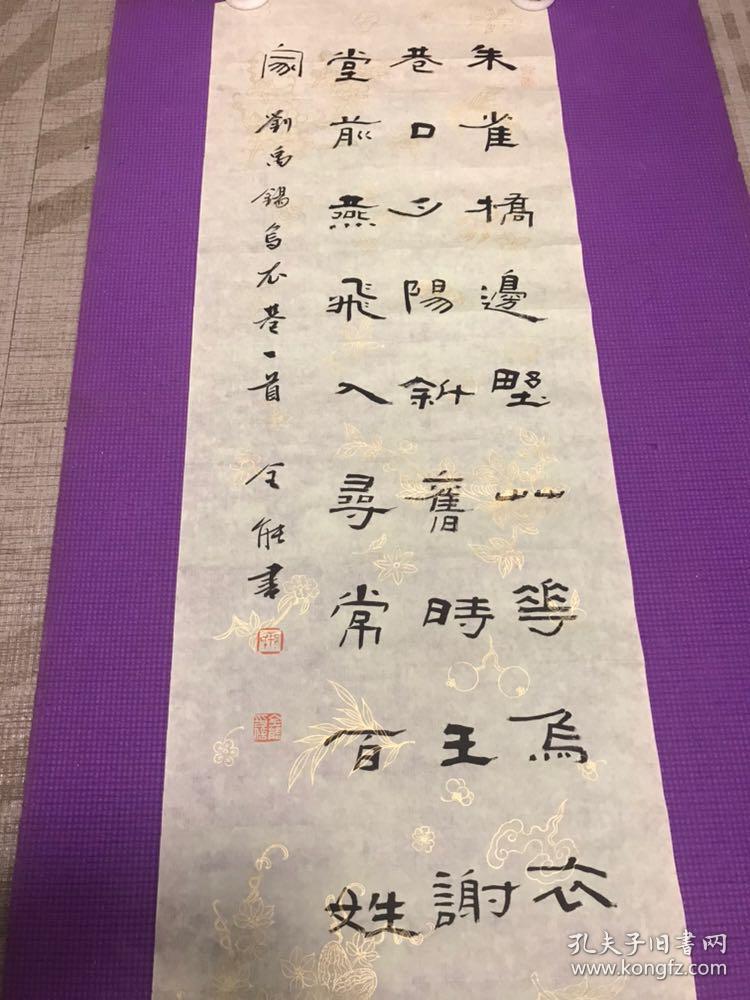 朱雀橋邊野艸花烏衣
巷口夕陽斜舊時王謝
堂前燕飛入尋常百姓
家 劉禹錫烏衣巷一首 全能書
孔夫子旧書网
www.kongfz.com